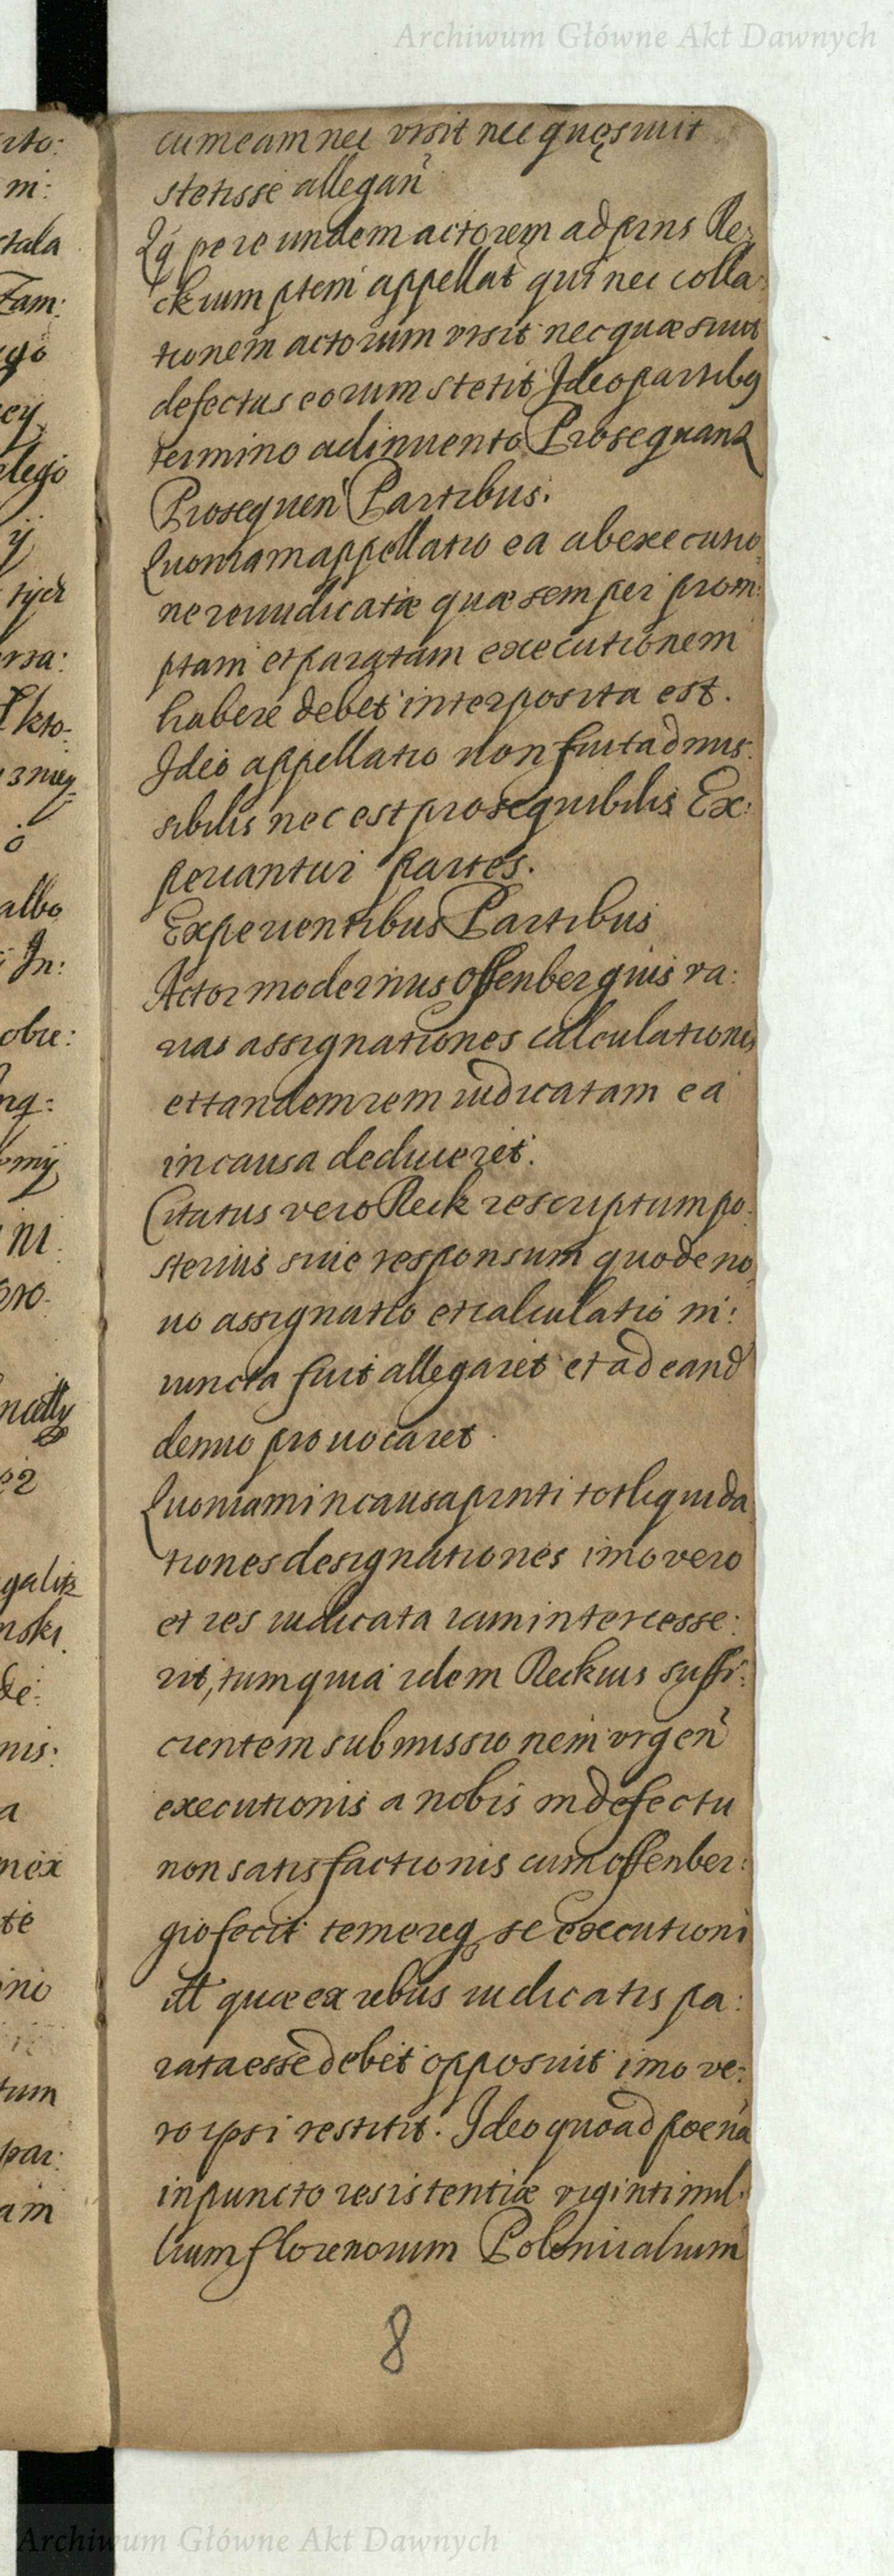 Archiwum Główne Akt Dawnych
cum eam nec visit nec quęsiuit
stetisse allegan̄
Qq̄ per eundem actorem ad prns Re:
ckium ptem appellat qui nec colla:
tionem actorum visit nec quæsiuit
defectus eorum stetit Ideo partibꝫ
termino adinuento Prosequant
Prosequen̄ Partibus.
Quoniam appellatio ea ab executio:
ne rei iudicatæ quæ semper prom:
ptam et paratam executionem
habere debet interposita est.
Ideo appellatio non fuit admis:
sibilis nec est prosequibilis Ex:
periantur partes.
Experientibus Partibus
Actor modernus Offenbergius va:
rias assignationes calculationes
et tandem rem iudicatam ea
in causa deduceret.
Citatus vero Reck rescriptum po:
sterius siue responsum quo de no:
uo assignatio et calculatio ini:
uncta fuit allegaret et ad eand
denuo prouocaret.
Quoniam in causa prnti tot liquida
tiones designationes imo vero
et res iudicata iam intercesse:
rit, tum quia idem Reckius suffi:
cientem submissionem vrgen̄
executionis a nobis in defectu
non satisfactionis cum Offenber:
gio fecit temereqꝫ se executioni
ill quæ ex rebus iudicatis pa:
rata esse debet opposuit imo ve:
ro ipsi restitit. Ideo quoad poena
in puncto resistentiæ viginti mil:
lium florenorum Polonicalium
8
Archiwum Główne Akt Dawnych